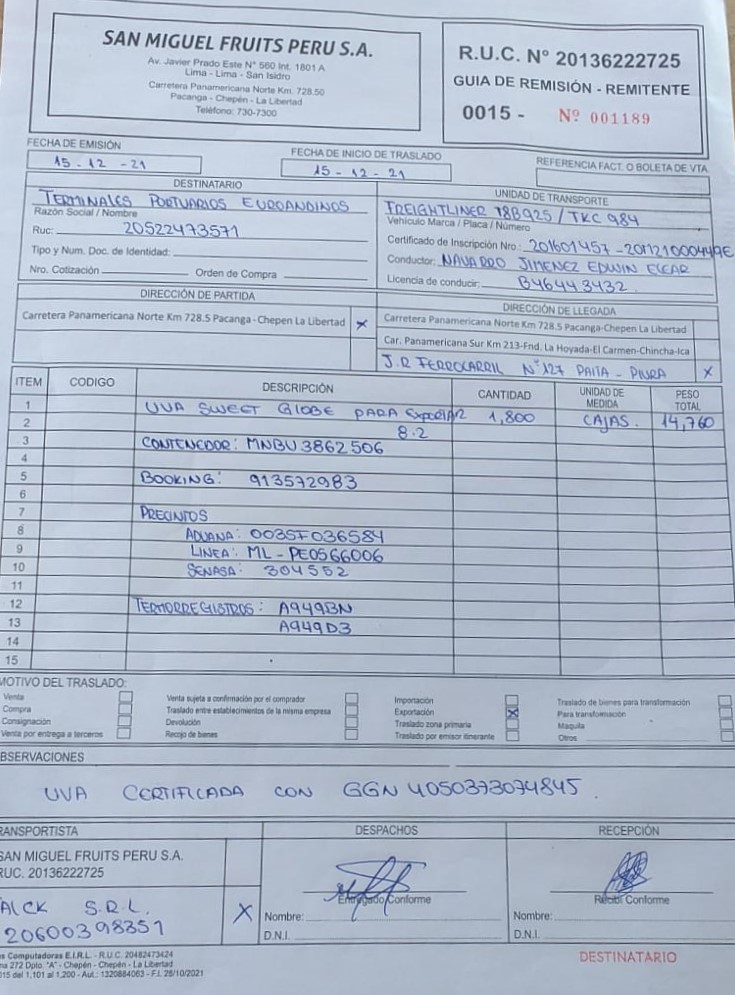 SAN MIGUEL FRUITS PERU S.A.
Av. Javier Prado Este N° 560 Int. 1801 A
Lima - Lima - San Isidro
Carretera Panamericana Norte Km. 728.50
Pacanga - Chepén - La Libertad
Teléfono: 730-7300
R.U.C. N° 20136222725
GUIA DE REMISIÓN - REMITENTE
0015 - Nº 001189
FECHA DE EMISIÓN
15-12-21
FECHA DE INICIO DE TRASLADO
15-12-21
REFERENCIA FACT. O BOLETA DE VTA.
DESTINATARIO
TERMINALES PORTUARIOS EUROANDINOS
Razón Social / Nombre
Ruc: 20522473571
Tipo y Num. Doc. de Identidad:
Nro. Cotización Orden de Compra
UNIDAD DE TRANSPORTE
FREIGHTLINER T8B925 / TKC 984
Vehículo Marca / Placa / Número
Certificado de Inscripción Nro: 201601457-
Conductor: NAVARRO JIMENEZ EDWIN
Licencia de conducir: B46443432
DIRECCIÓN DE PARTIDA
Carretera Panamericana Norte Km 728.5 Pacanga-Chepen La Libertad X
DIRECCIÓN DE LLEGADA
Carretera Panamericana Norte Km 728.5 Pacanga-Chepen La Libertad
Car. Panamericana Sur Km 213-Fnd. La Hoyada-El Carmen-Chincha-Ica
J.R FERROCARRIL N° 127 PAITA - PIURA X
ITEM CODIGO DESCRIPCIÓN CANTIDAD UNIDAD DE MEDIDA PESO TOTAL
1 UVA SWEET GLOBE PARA EXPORTAR 1,800 CAJAS. 14,760
2 8.2
3 CONTENEDOR: MNBU3862506
4
5 BOOKING: 913572983
6
7 PRECINTOS
8 ADUANA: 0035F036584
9 LINEA: ML-PE0566006
10 SENASA: 304552
11
12 TERMORREGISTROS: A949BN
13 A949D3
14
15
MOTIVO DEL TRASLADO:
Venta
Compra
Consignación
Venta por entrega a terceros
Venta sujeta a confirmación por el comprador
Traslado entre establecimientos de la misma empresa
Devolución
Recojo de bienes
Importación
Exportación X
Traslado zona primaria
Traslado por emisor itinerante
Traslado de bienes para transformación
Para transformación
Maquila
Otros
BSERVACIONES
UVA CERTIFICADA CON GGN 4050373074845.
RANSPORTISTA
SAN MIGUEL FRUITS PERU S.A.
RUC. 20136222725
ALCK S.R.L.
20600398351 X
DESPACHOS
Entregado Conforme
Nombre:
D.N.I.
RECEPCIÓN
Recibí Conforme
Nombre:
D.N.I.
es Computadoras E.I.R.L. - R.U.C. 20482473424
na 272 Dpto. "A" - Chepén - Chepén - La Libertad
015 del 1,101 al 1,200 - Aut.: 1320884063 - F.I. 28/10/2021
DESTINATARIO